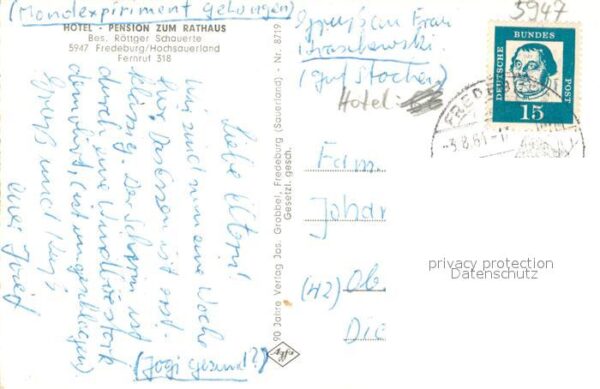 (Mondexperiment gelungen)
HOTEL - PENSION ZUM RATHAUS
Bes. Röttger Schauerte
5947 Fredeburg/Hochsauerland
Fernruf 318
Liebe Eltern!
Wir sind nun eine Woche
hier. Das Essen ist erst-
klassig. Der Schirm ist
durch eine Windstärke
Gruss und Kuss
(Jogi gesund?)
90 Jahre Verlag Jos. Grobbel, Fredeburg (Sauerland) - Nr. 8719
Gesetzl. gesch.
Gruss an Frau
(auf Stochen)
Hotel
5947
DEUTSCHE BUNDES POST
15
FREDEBURG
-3.8.61-11
Fam.
Johan
(42) Ob.
Die
privacy protection
Datenschutz